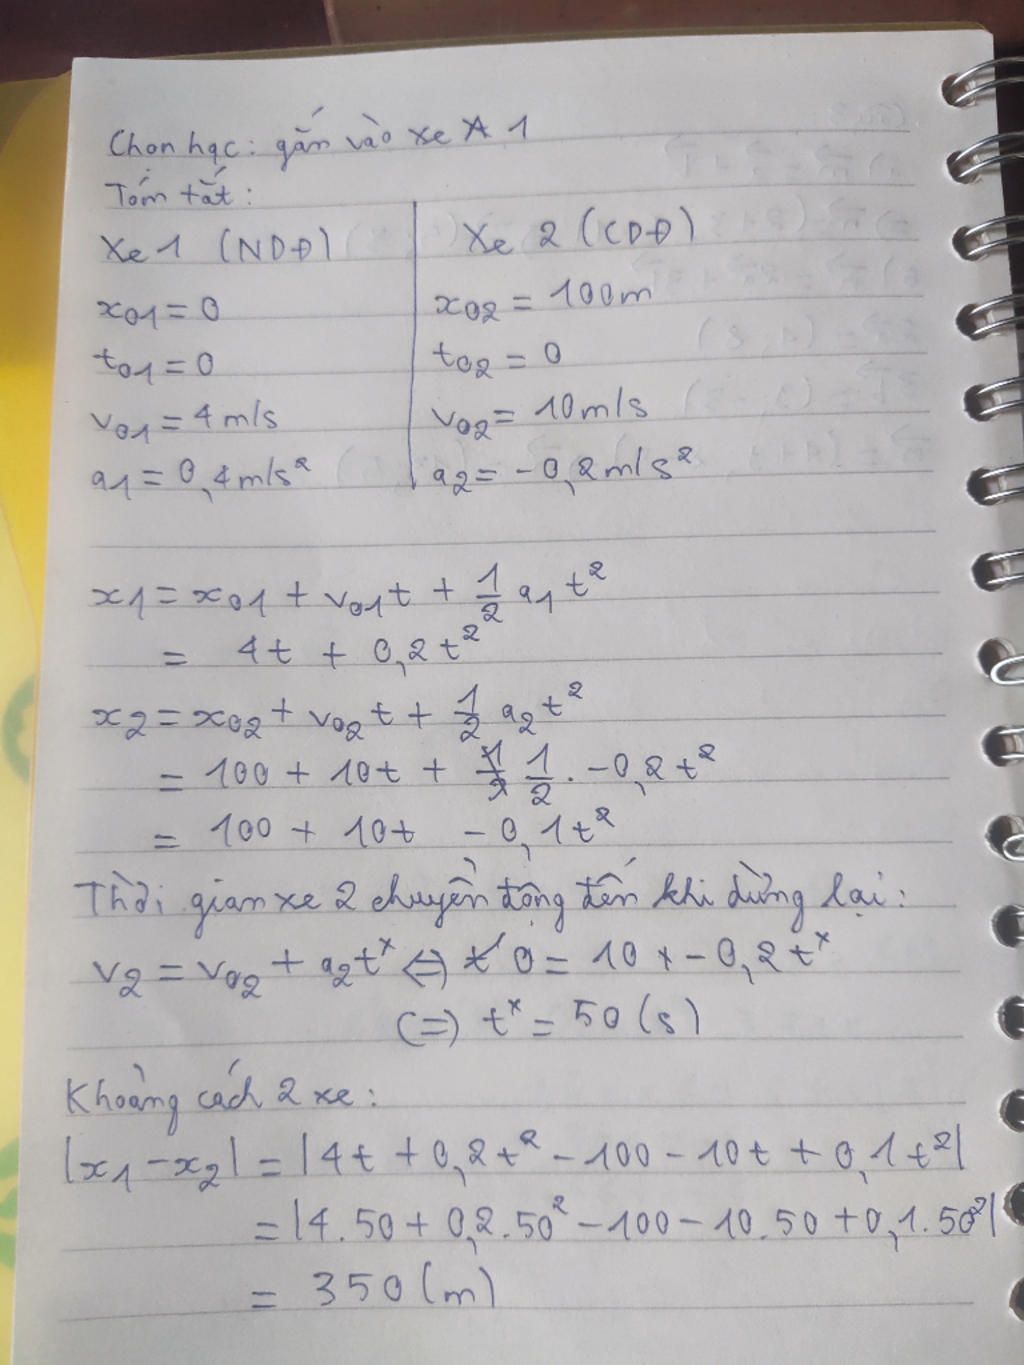 Chọn hqc: gắn vào xe 1
Tóm tắt:
Xe 1 (NDĐ)
x01 = 0
t01 = 0
v01 = 4 m/s
a1 = 0,4 m/s²
Xe 2 (CDĐ)
x02 = 100m
t02 = 0
v02 = 10m/s
a2 = -0,2m/s²
x1 = x01 + v01t + 1/2 a1 t²
= 4t + 0,2t²
x2 = x02 + v02 t + 1/2 a2 t²
= 100 + 10t + 1/2 . -0,2t²
= 100 + 10t - 0,1t²
Thời gian xe 2 chuyển động đến khi dừng lại:
v2 = v02 + a2tˣ ⇔ 0 = 10 + -0,2tˣ
(=) tˣ = 50 (s)
Khoảng cách 2 xe:
|x1 - x2| = |4t + 0,2t² - 100 - 10t + 0,1t²|
= |4.50 + 0,2.50² - 100 - 10.50 + 0,1.50²|
= 350 (m)